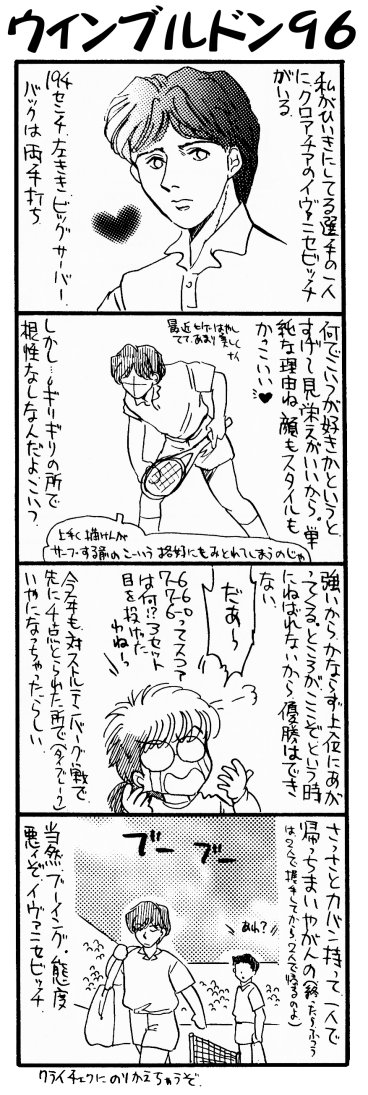 ウインブルドン96
私がひいきにしてる選手の一人
に、クロアチアのイヴァニセビッチ
がいる。
194センチ左きき、ビッグサーバー、
バックは両手打ち
何でこいつが好きかというと
すげー見栄えがいいから。単
純な理由ね。顔もスタイルも
かっこいい♥
最近ヒゲはやし
てて、あまり美しく
ナイ
しかし…ギリギリの所で
根性なしなんだよこいつ。
上手く描けんが
サーブする前のこーいう格好にもみとれてしまうのじゃ
強いから、かならず上位にあが
ってくる。ところが、ここぞという時
にねばれないから優勝はでき
ない
だぁ〜
6-7
6-7
0-6ってスコア
は何!?3セット
目を投げた
わね〜っ
今年も対ストルテンバーグ戦で
先に4点とられた所で(タイブレーク)
いやになっちゃったらしい
さっさとカバン持って、一人で
帰っちまいやがんの(終ったらふつう
は、2人で握手してから2人で帰るのよ)
ブー
ブー
あれ?
当然ブーイング。態度
悪ィぞ、イヴァニセビッチ
クライチェクにのりかえちゃうぞ.